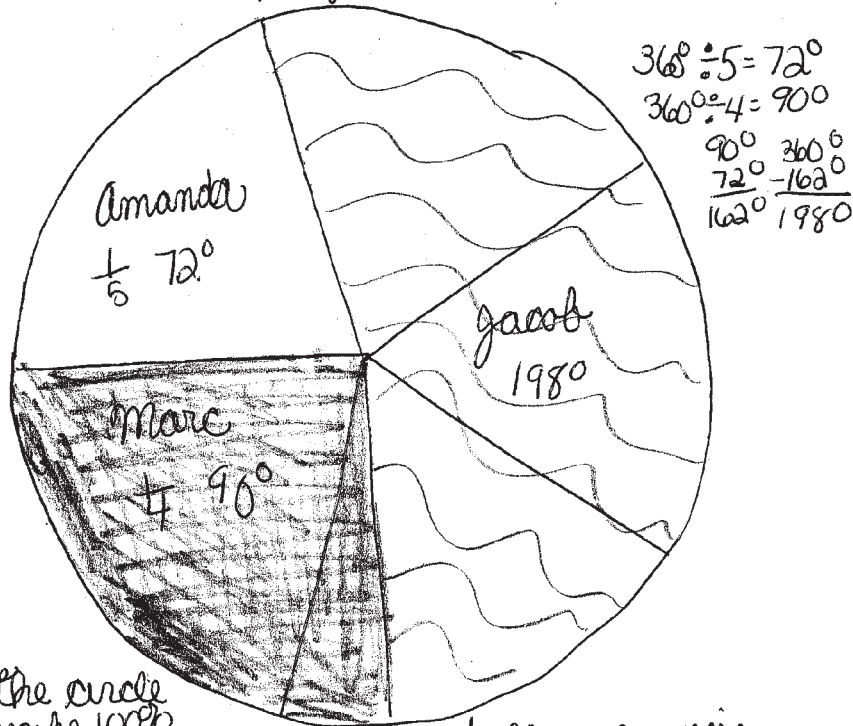 360° ÷ 5 = 72°
360° ÷ 4 = 90°
90° 360°
72° -162°
162° 198°
Amanda
1/5 72°
Jacob
198°
Marc
1/4 90°
The circle